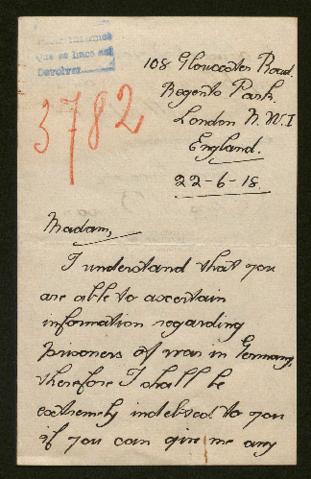 que se haco
Devolver
3782
108 Gloucester Road.
Regents Park.
London N.W.I
England.
22-6-18.
Madam,
I understand that you
are able to ascertain
information regarding
prisoners of war in Germany,
therefore I shall be
extremely indebted to you
if you can give me any